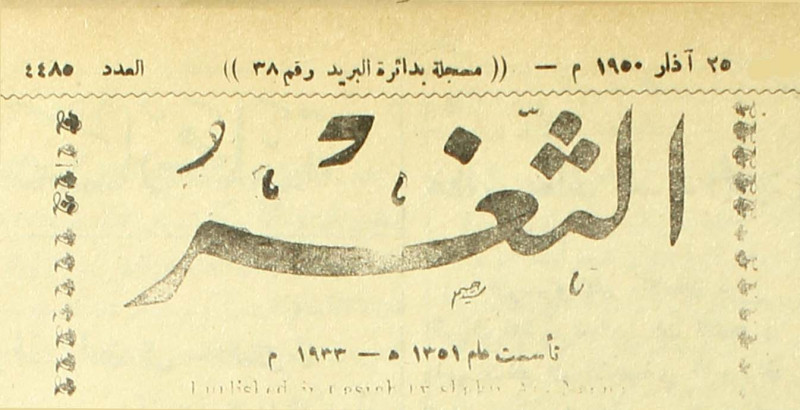 ٢٥ آذار ١٩٥٠ م — (( مسجلة بدائرة البريد رقم ٣٨ )) العدد ٤٤٨٥
الثَّغْرُ
تأسست عام ١٣٥١ ه — ١٩٣٣ م